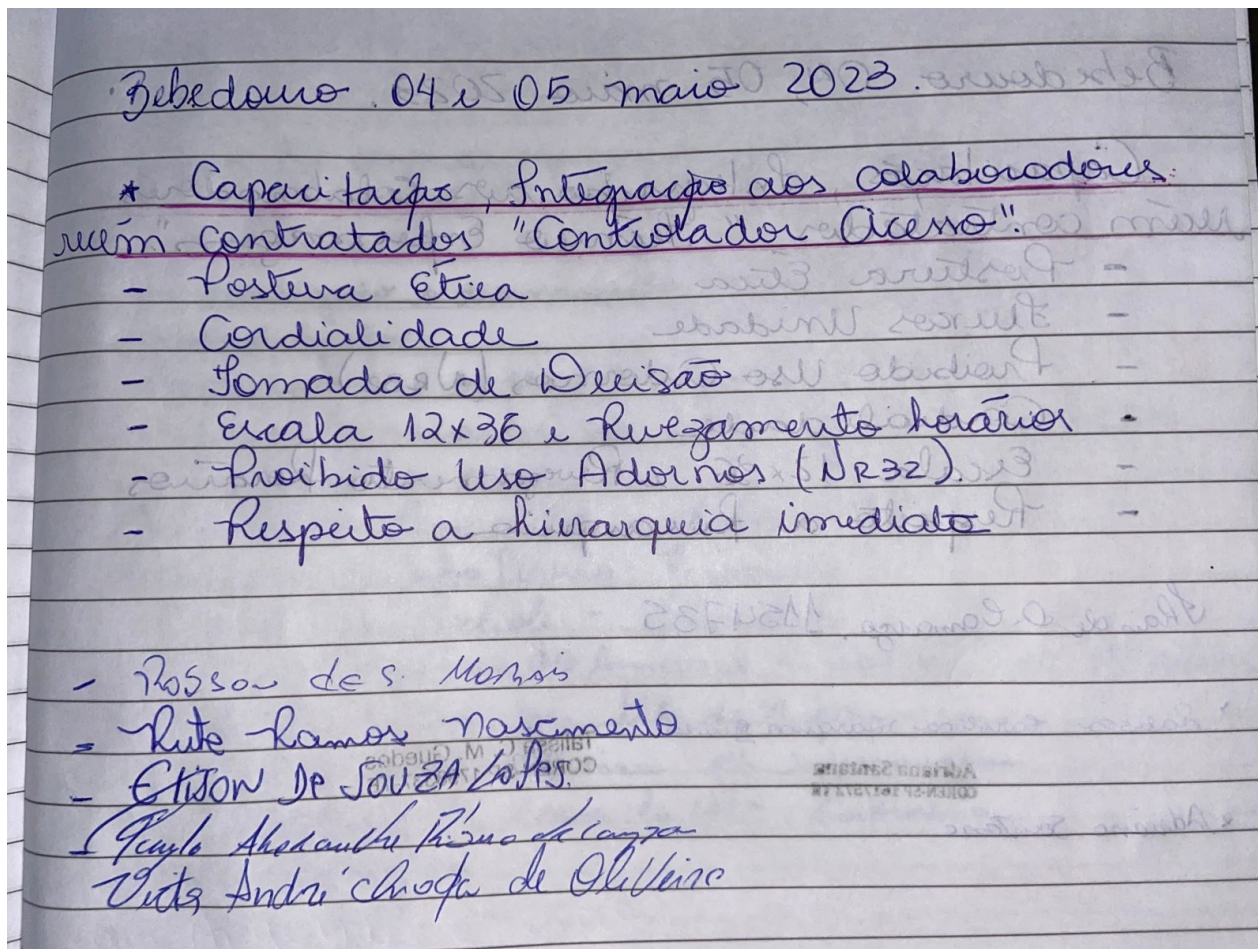 Bebedouro 04 e 05 maio 2023.
* Capacitação, Integração aos colaboradores
recém contratados "Controlador Acesso".
- Postura Ética
- Cordialidade
- Tomada de Decisão
- Escala 12x36 e Revezamento horários
- Proibido Uso Adornos (NR32).
- Respeito a hierarquia imediata
- de S.
- Rute Ramos Nascimento
- DE SOUZA
Victor André de Oliveira